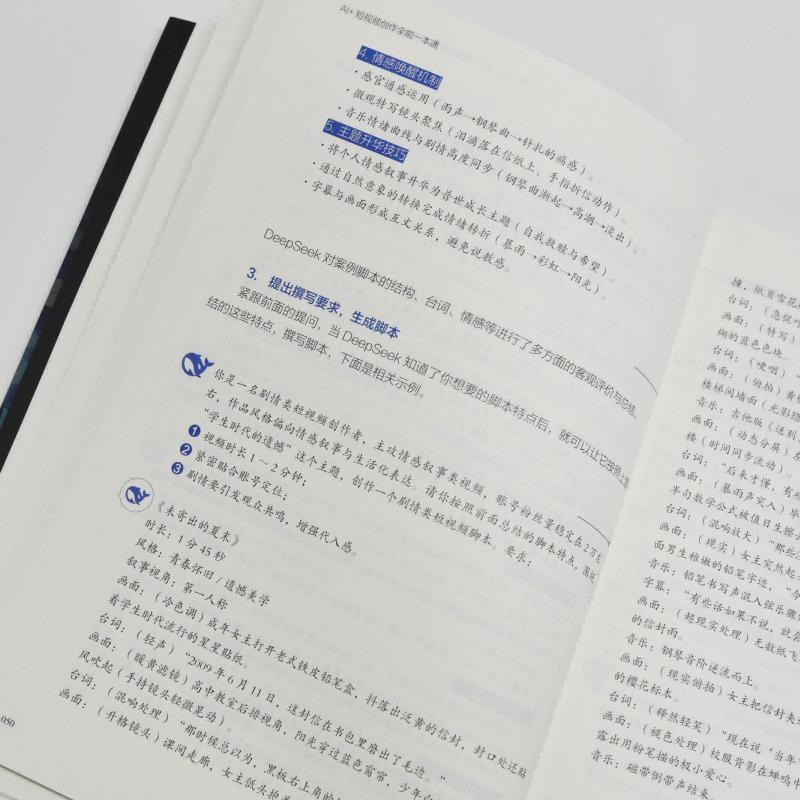 AI+ 短视频创作全能一本通
4. 情感唤醒机制
· 感官通感运用（雨声→钢琴曲→针扎的痛感）。
· 微观特写镜头聚焦（泪滴落在信纸上、手指折信动作）。
· 音乐情绪曲线与剧情高度同步（钢琴曲渐起→高潮→淡出）。
5. 主题升华技巧
· 将个人情感叙事升华为普世成长主题（自我救赎与希望）。
· 通过自然意象的转换完成情绪转折（暴雨→彩虹→阳光）。
· 字幕与画面形成互文关系，避免说教感。
DeepSeek 对案例脚本的结构、台词、情感等进行了多方面的客观评价与总结。
3. 提出撰写要求，生成脚本
紧跟前面的提问，当 DeepSeek 知道了你想要的脚本特点后，就可以让它按照上面总
结的这些特点，撰写脚本，下面是相关示例。
你是一名剧情类短视频创作者，主攻情感叙事类视频，账号粉丝量稳定在2万左
右，作品风格偏向情感叙事与生活化表达。请你按照前面总结的脚本特点，围绕
“学生时代的遗憾”这个主题，创作一个剧情类短视频脚本。要求：
❶ 视频时长1～2分钟；
❷ 紧密贴合账号定位；
❸ 剧情要引发观众共鸣，增强代入感。
《未寄出的夏末》
时长：1分45秒
风格：青春怀旧/遗憾美学
叙事视角：第一人称
画面：（冷色调）成年女主打开老式铁皮铅笔盒，抖落出泛黄的信封，封口处还贴
着学生时代流行的星星贴纸。
台词：（轻声）“2009年6月11日，这封信在书包里磨出了毛边。”
画面：（暖黄滤镜）高中教室后排视角，阳光穿过蓝色窗帘，少年白
风吹起（手持镜头轻微晃动）。
台词：（混响处理）“那时候总以为，黑板右上角的
画面：（升格镜头）课间走廊，女主低头抱着
050
撞，纸页雪花
台词：（急促呼
画面：（特写）
糊的蓝色色块。
台词：（哽咽）“
画面：（俯拍）黄
楼梯间墙面（光影随
音乐：吉他版《送别》
画面：（动态分屏）左
楼（时间同步流动）。
台词：“后来才懂，有些
画面：（暴雨声突入）毕
半句数学公式被值日生擦去
台词：（混响放大）“那些
画面：（现实）女主突然起
面男生稚嫩的铅笔字迹，“今
音乐：铅笔书写声混入弦乐骤
字幕：“有些话如果不说，就会
画面：（超现实处理）无数纸飞
的信封雨。
音乐：钢琴音阶逆流而上。
画面：（现实俯拍）女主把信封夹
的樱花标本。
台词：（释然轻笑）“现在说‘当年
画面：（褪色处理）校服背影在蝉鸣中
露出用粉笔描的极小爱心。
音乐：磁带倒带声结束。